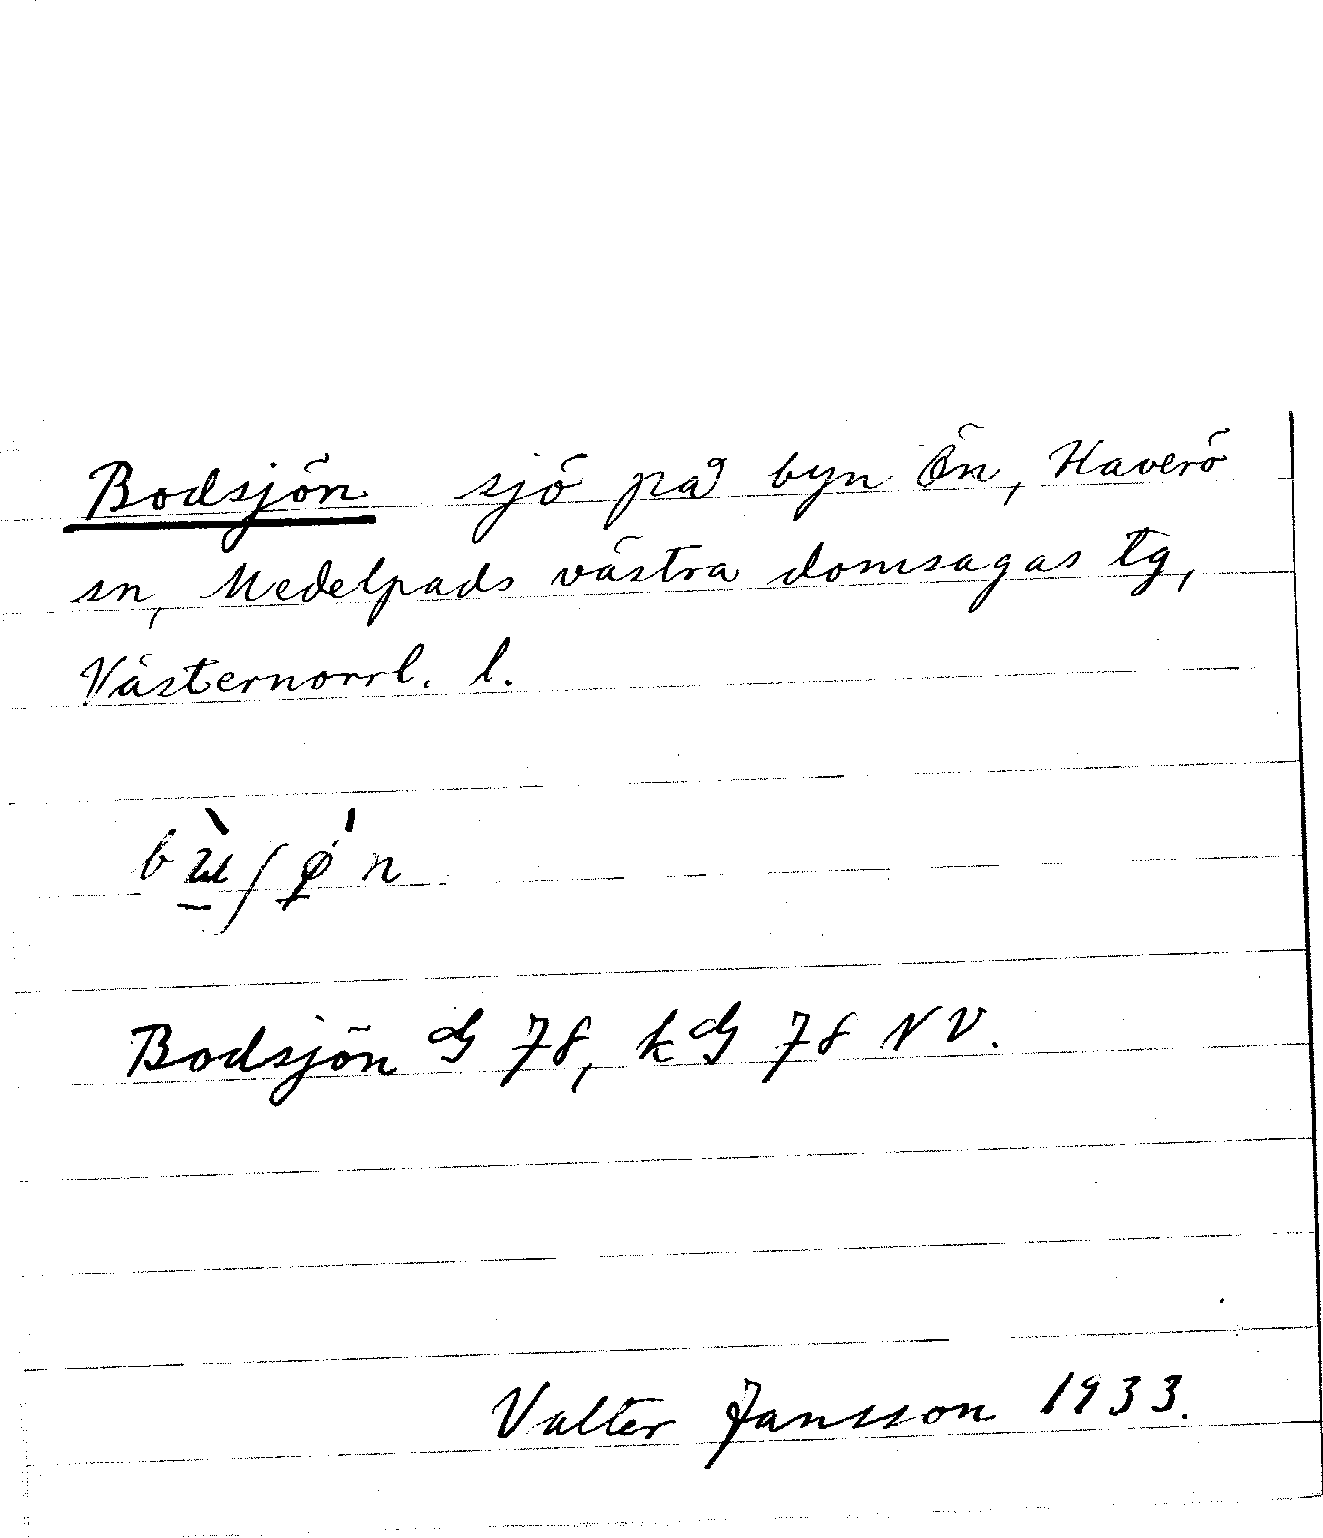 Bodsjön sjö på byn Ön, Haverö
sn, Medelpads västra domsagas tg,
Västernorrl. l.
Bodsjön G 78, kG 78 NV.
Valter Jansson 1933.